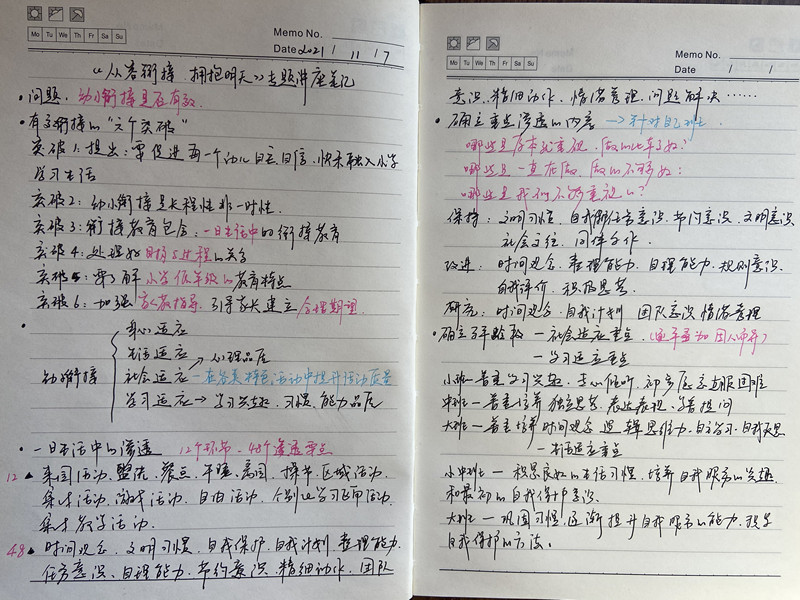 Mo Tu We Th Fr Sa Su
Memo No.
Date 2021 / 11 / 7
《从容衔接 拥抱明天》专题讲座笔记
·问题: 幼小衔接是否有效.
·有效衔接的"六个突破"
突破1: 提出: 要促进每一个幼儿自主自信, 快乐融入小学
学习生活
突破2: 幼小衔接是长程性非一时性.
突破3: 衔接教育包含: 一日生活中的衔接教育
突破4: 处理好目标与进程的关系
突破5: 要了解小学低年级的教育特点
突破6: 加强家教指导, 引导家长建立合理期望.
· 身心适应
生活适应 → 心理品质
幼小衔接 社会适应 - 在各类特色活动中提升活动质量
学习适应 → 学习兴趣、习惯、能力品质
·一日生活中的渗透 12个环节、48个渗透要点
12 ▲ 来园活动、盥洗、餐点、午睡、离园、操节、区域活动、
集体活动、游戏活动、自由活动、个别化学习活动、
集体教学活动.
48 ▲ 时间观念、文明习惯、自我保护、自我计划、整理能力、
任务意识、自理能力、节约意识、精细动作、团队
Mo Tu We Th Fr Sa Su
Memo No.
Date / /
意识、精细动作、情绪管理、问题解决……
·确立重点渗透的内容 → 针对自己班
哪些是原本就重视, 做的比较好?
哪些是一直在做, 做的不够好?
哪些是我们不够重视的?
保持: 文明习惯、自我保护、任务意识、节约意识、文明意识
社会交往、同伴合作.
改进: 时间观念、整理能力、自理能力、规则意识、
自我评价、积极思考.
研究: 时间观念、自我计划 团队意识 情绪管理
·确立年龄段 - 社会适应重点 (
- 学习适应重点
小班 - 着重学习兴趣、专心倾听、初步愿意克服困难
中班 - 着重培养 独立思考、表达表现、会看提问
大班 - 着重培养 时间观念 逻辑思维力、自主学习、自我反思
- 生活适应重点
小中班 - 积累良好的生活习惯, 培养自我服务的兴趣
和最初的自我保护意识.
大班 - 巩固习惯, 逐渐提升自我服务的能力, 积累
自我保护的方法.